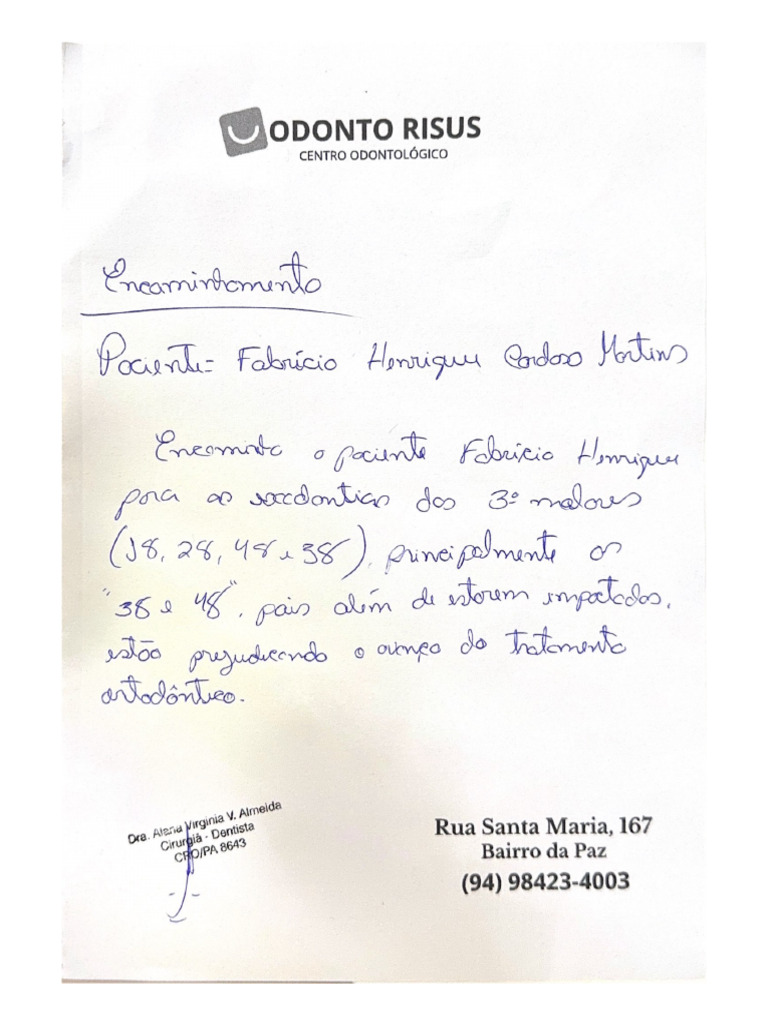 ODONTO RISUS
CENTRO ODONTOLÓGICO
Encaminhamento
Paciente= Fabrício Henrique Cardoso Martins
Encaminho o paciente Fabrício Henrique
para as exodontias dos 3º molares
(18, 28, 48 e 38), principalmente os
"38 e 48", pois além de estarem impactados,
estão prejudicando o avanço do tratamento
ortodôntico.
Dra. Alana Virginia V. Almeida
Cirurgiã - Dentista
CRO/PA 8643
Rua Santa Maria, 167
Bairro da Paz
(94) 98423-4003